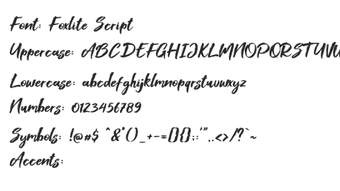 Font: Foxlite Script
Uppercase: ABCDEFGHIJKLMNOPQRSTUVW
Lowercase: abcdefghijklmnopqrstuvwxyz
Numbers: 0123456789
Symbols: !@#$ ^&*()_+-={}[]:;'",.<>/?`~
Accents: